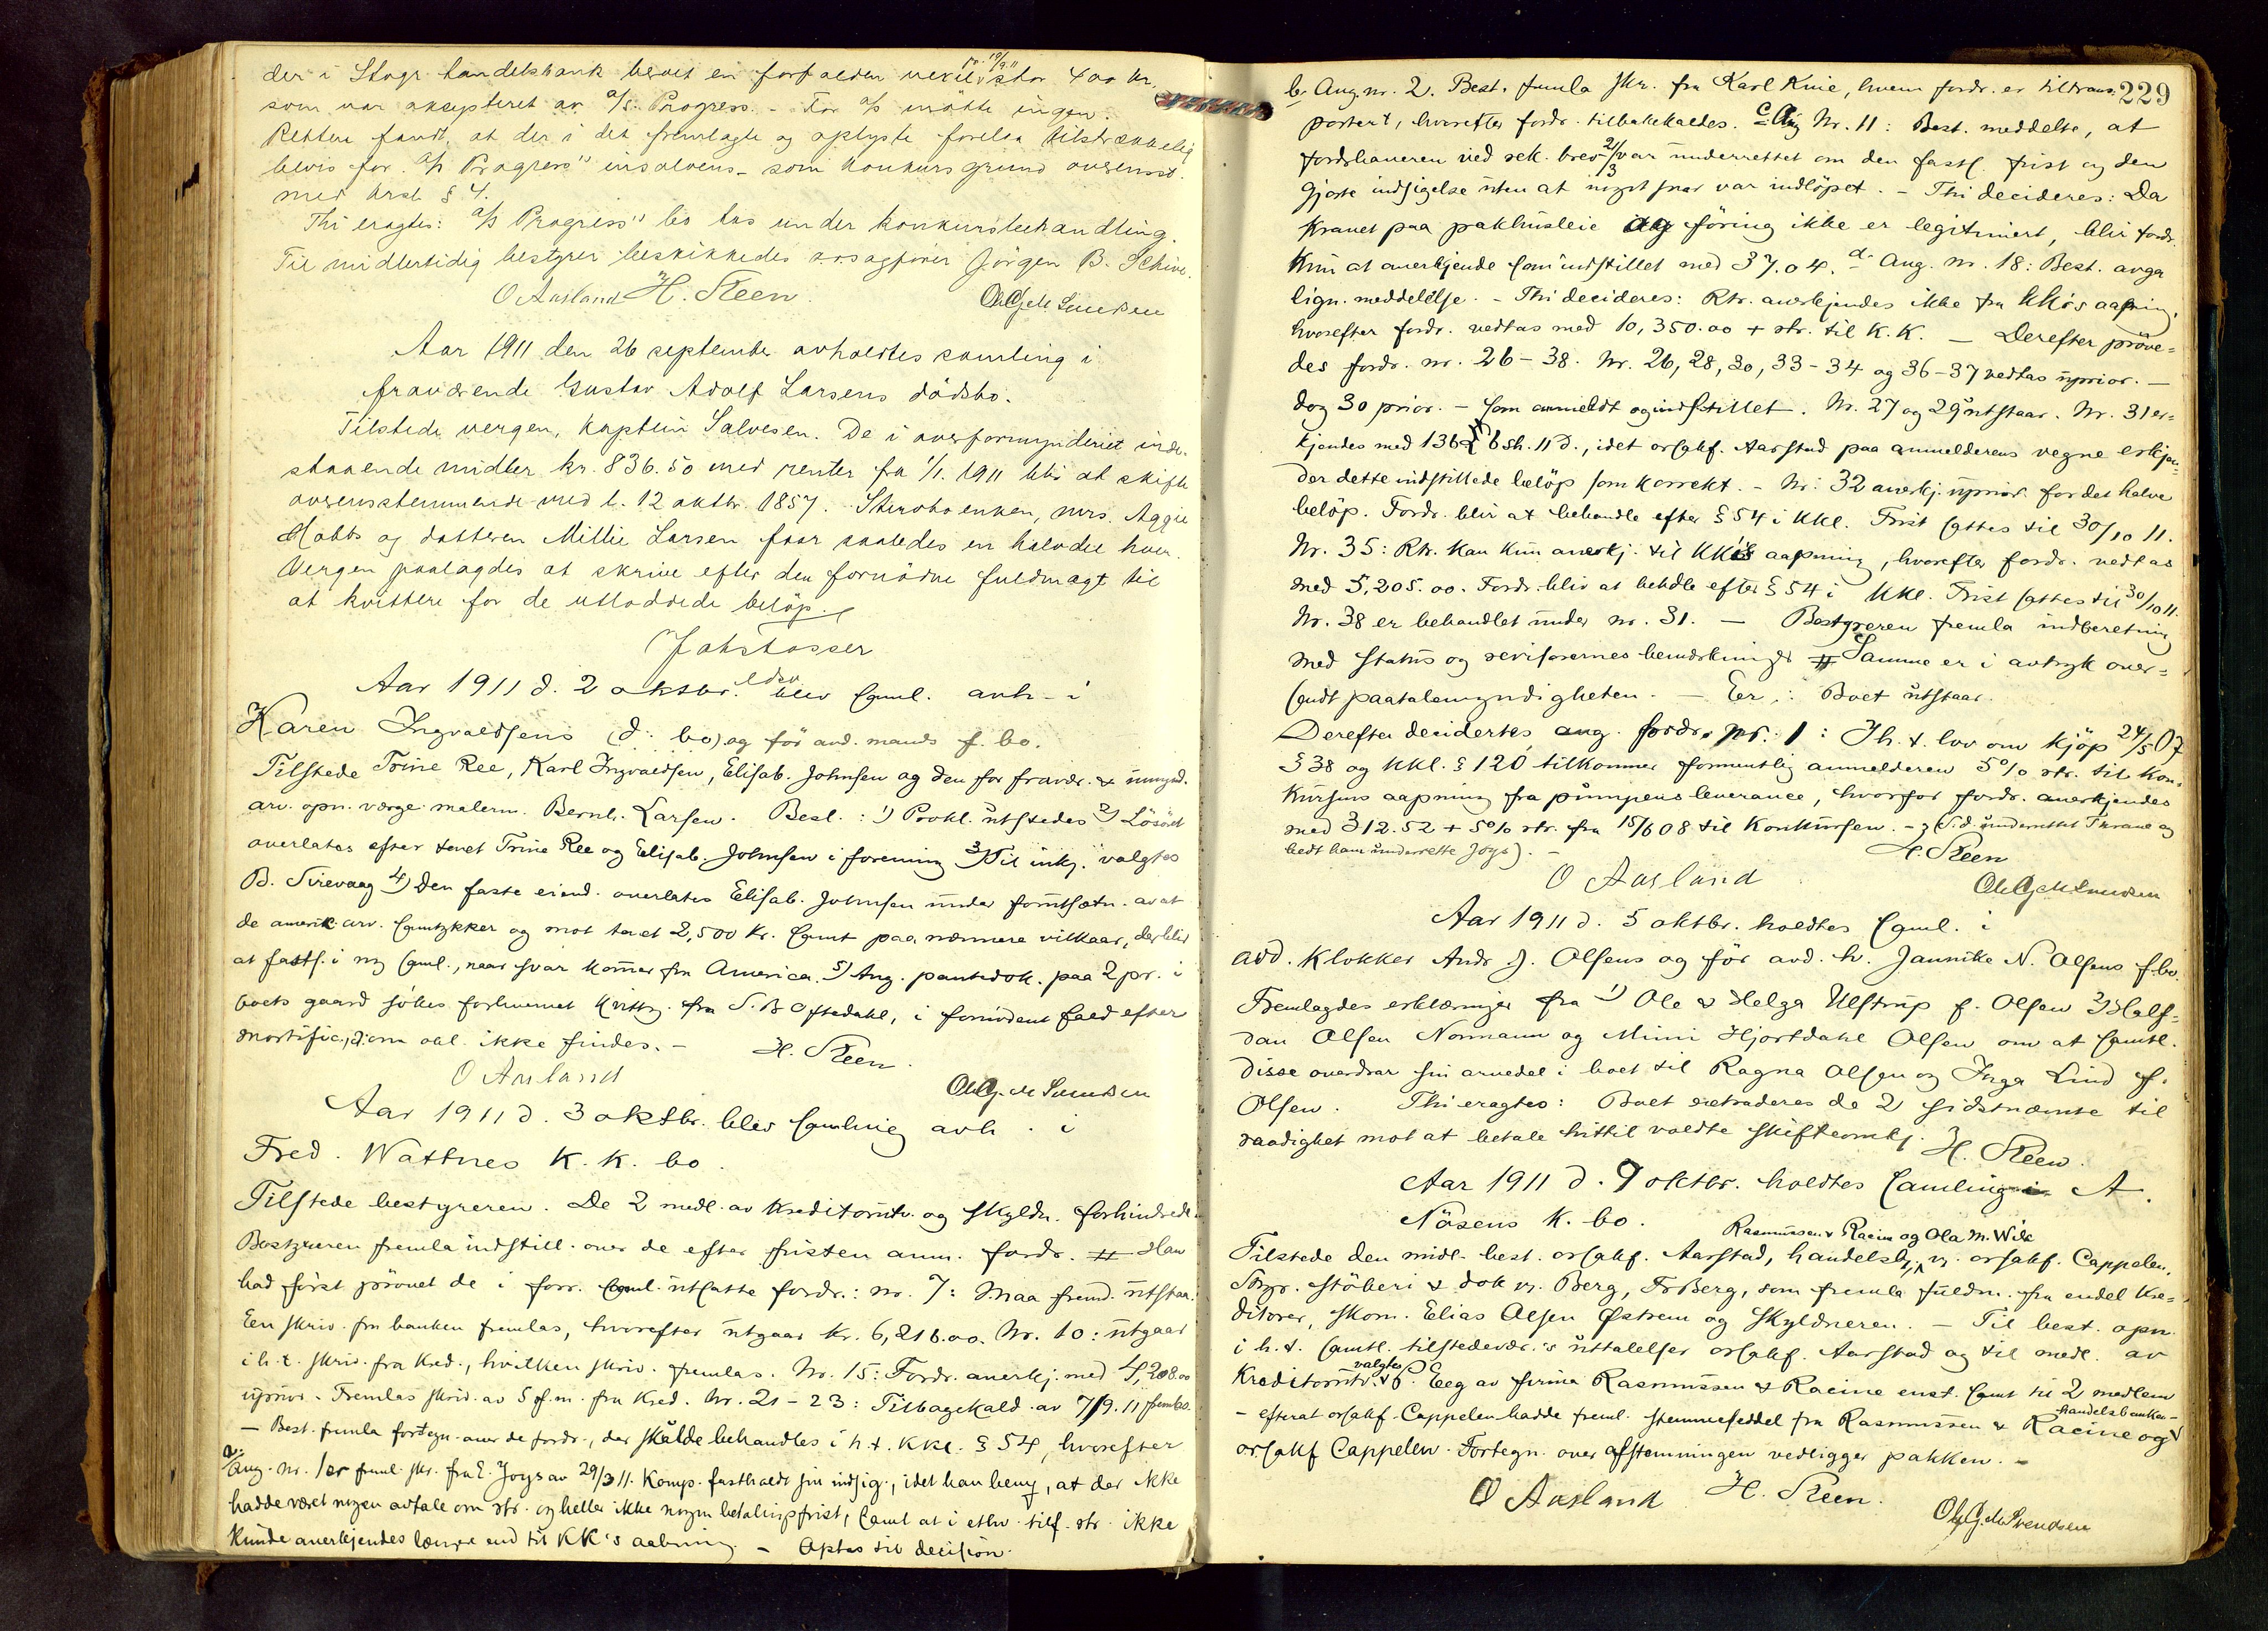 der i Stvgr. handelsbank beroet en forfalden veksel pr. 19/9 11 stor 400 kr.
som var aksepteret av a/s. Progress. - For a/s mötte ingen.
Retten fandt, at der i det fremlagte og oplyste forelaa tilstrækkelig
bevis for "a/s Progress" insolvens - som konkursgrund overensst.
med krsl. § 4.
Thi eragtes: a/s Progress" bo tas under konkursbehandling.
Til midlertidig bestyrer beskikkedes o.r.sagförer Jörgen B. Schive.
O Aasland H. Steen. Ole G. M. Svendsen
Aar 1911 den 26 september avholdtes samling i
fraværende Gustav Adolf Larsens dödsbo.
Tilstede vergen, kaptein Salvesen. De i overformynderiet inde-
staaende midler kr. 836.50 med renter fra 1/1. 1911 blir at skifte
overensstemmende med l. 12 oktbr. 1857. Stervboenken, mrs. Aggie
Mabbs og datteren Millie Larsen faar saaledes en halvdel hver.
Vergen paalagdes at skrive efter den fornödne fuldmagt til
at kvittere for de utloddede belöp.
Aar 1911 d. 2 oktbr. blev saml. avh - i
Karen Ingvaldsens (d: bo) og för avd. mands f. bo.
Tilstede Trine Ree, Karl Ingvaldsen, Elisab. Johnsen og den for fravær. & umynd.
arv. opn. værge malerm. Bernh. Larsen. Besl.: 1) Prokl. utstedes 2) Lösöret
overlates efter taxt Trine Ree og Elisab. Johnsen i forening 3) Til inkj. valgtes
B. Sirevaag 4) Den faste eiend. overlates Elisab. Johnsen under forutsætn. av at
de amerik. arv. samtykker og mot taxt 2,500 kr. samt paa nærmere vilkaar, der blir
at fasts. i ny saml., naar svar kommer fra America. 5) Ang. pantedok. paa 2 pr. i
boets gaard sökes forhvervet kvittg. fra S. B Oftedahl, i fornödent fald efter
mortific., d: om obl. ikke findes. - H. Steen.
O Aasland Ole G. M Svendsen
Aar 1911 d. 3 oktbr. blev samling avh. i
Fred. Wattnes K. K. bo.
Tilstede bestyreren. De 2 medl. av kreditorutv. og skyldn. forhindrede.
Bestyreren fremla indstill. over de efter fristen anm. fordr. # Han
had först prövet de i forr. saml. utsatte fordr.: nr. 7: Maa fremd. utstaa.
En skriv. fra banken fremlas, hvorefter utgaar kr. 6,216.00. Nr. 10: utgaar
i h. t. skriv. fra kred., hvilken skriv. fremlas. Nr. 15: Fordr. anerkj. med 4,208.00
uprior. Fremlas skriv. av 5 d.m. fra kred. Nr. 21 - 23: Tilbagekald. av 7/9.11 fremlas.
- Best. fremla fortegn. over de fordr., der skulde behandles i h. t. KKl. § 54, hvorefter
a: Ang. nr. 1 er freml. skr. fra E. Joys av 29/3 11. Komp. fastholdt sin indsig., idet han bem., at der ikke
hadde været nogen avtale om rtr. og heller ikke nogen betalingsfrist, samt at i ethv. tilf. rtr. ikke
kunde anerkjendes længre end til KK's aabning. - Optas til decision.
229
b. Ang. nr. 2. Best. fremla skr. fra Karl Kine, hvem fordr. er tiltrans-
portert, hvorefter fordr. tilbakekaldes. c Ang Nr. 11: Best. meddelte, at
fordrhaveren ved rek. brev 2/3 var underrettet om den fasts. frist og den
gjorte indsigelse uten at noget svar var indlöpet. - Thi decideres: Da
kravet paa pakhusleie og föring ikke er legitimert, blir fordr.
kun at anerkjende som indstillet med 37.04. d Ang. nr. 18: Best. avga
lign. meddelelse. - Thi decideres: Rtr. anerkjendes ikke fra KK's aapning,
hvorefter fordr. vedtas med 10,350.00 + rtr. til K.K. - Derefter pröve-
des fordr. nr. 26 - 38. Nr. 26, 28, 30, 33 - 34 og 36 - 37 vedtas uprior. -
dog 30 prior. - som anmeldt og indstillet. Nr. 27 og 29 utstaar. Nr. 31 er-
kjendes med 136 £ 6 sh. 11 d., idet orsakf. Aarstad paa anmelderens vegne erkjen-
der dette indstillede belöp som korrekt. - Nr. 32 anerkj. uprior. for det halve
belöp. Fordr. blir at behandle efter § 54 i KKl. Frist sattes til 30/10 11.
Nr. 35: Rtr. kan kun anerkj. til KK's aapning, hvorefter fordr. vedtas
med 5,205.00. Fordr. blir at behdle efter § 54 i KKl. Frist sattes til 30/10 11.
Nr. 38 er behandlet under nr. 31. - Bestyreren fremla indberetning
med status og revisorernes bemerkninger # Samme er i avtryk over-
sendt paatalemyndigheten. - Boet utstaar.
Derefter decidertes ang. fordr. nr. 1: I h. t. lov om kjöp 24/5 07
§ 38 og KKl. § 120 tilkommer formentlig anmelderen 5% rtr. til kon-
kursens aapning fra pumpens leverance, hvorfor fordr. anerkjendes
med 312.52 + 5% rtr. fra 15/6 08 til Konkursen. - (S. d. underrettet Thrane og
bedt ham underrette Joys). - H. Steen
O Aasland Ole G M Svendsen
Aar 1911 d. 5 oktbr. holdtes saml. i
avd. Klokker Andr. J. Olsens og för avd. h. Jannike N. Olsens f.bo.
Fremlagdes erklæringer fra 1) Ole & Helga Ulstrup f. Olsen 2) Half-
dan Olsen Normann og Mimi Hjortdahl Olsen om at samtl.
disse overdrar sin arvedel i boet til Ragna Olsen og Inga Lind f.
Olsen. Thi eragtes: Boet extraderes de 2 sidstnævnte til
raadighet mot at betale hittil voldte skifteomkj. H. Steen.
Aar 1911 d. 9 oktbr. holdtes samling i A.
Näsens K. bo.
Rasmussen & Racine og Ola M. Wik
Tilstede den midl. best. orsakf. Aarstad, handelsb. v. orsakf. Cappelen,
Stvgr. stöberi & dok v. Berg, Fr Berg, som fremla fuldm. fra endel kre-
ditorer, skom. Elias Olsen Østrem og Skyldneren. - Til best. opn.
i h. t. samtl. tilstedevær.'s uttalelser orsakf. Aarstad og til medl. av
Kreditorutv. valgtes Eeg av firma Rasmussen & Racine enst. samt til 2 medlem
- efterat orsakf. Cappelen hadde freml. stemmeseddel fra Rasmussen & Racine og handelsbanken -
orsakf Cappelen. Fortegn. over afstemningen vedligger pakken. -
O Aasland H. Steen. Ole G. M Svendsen